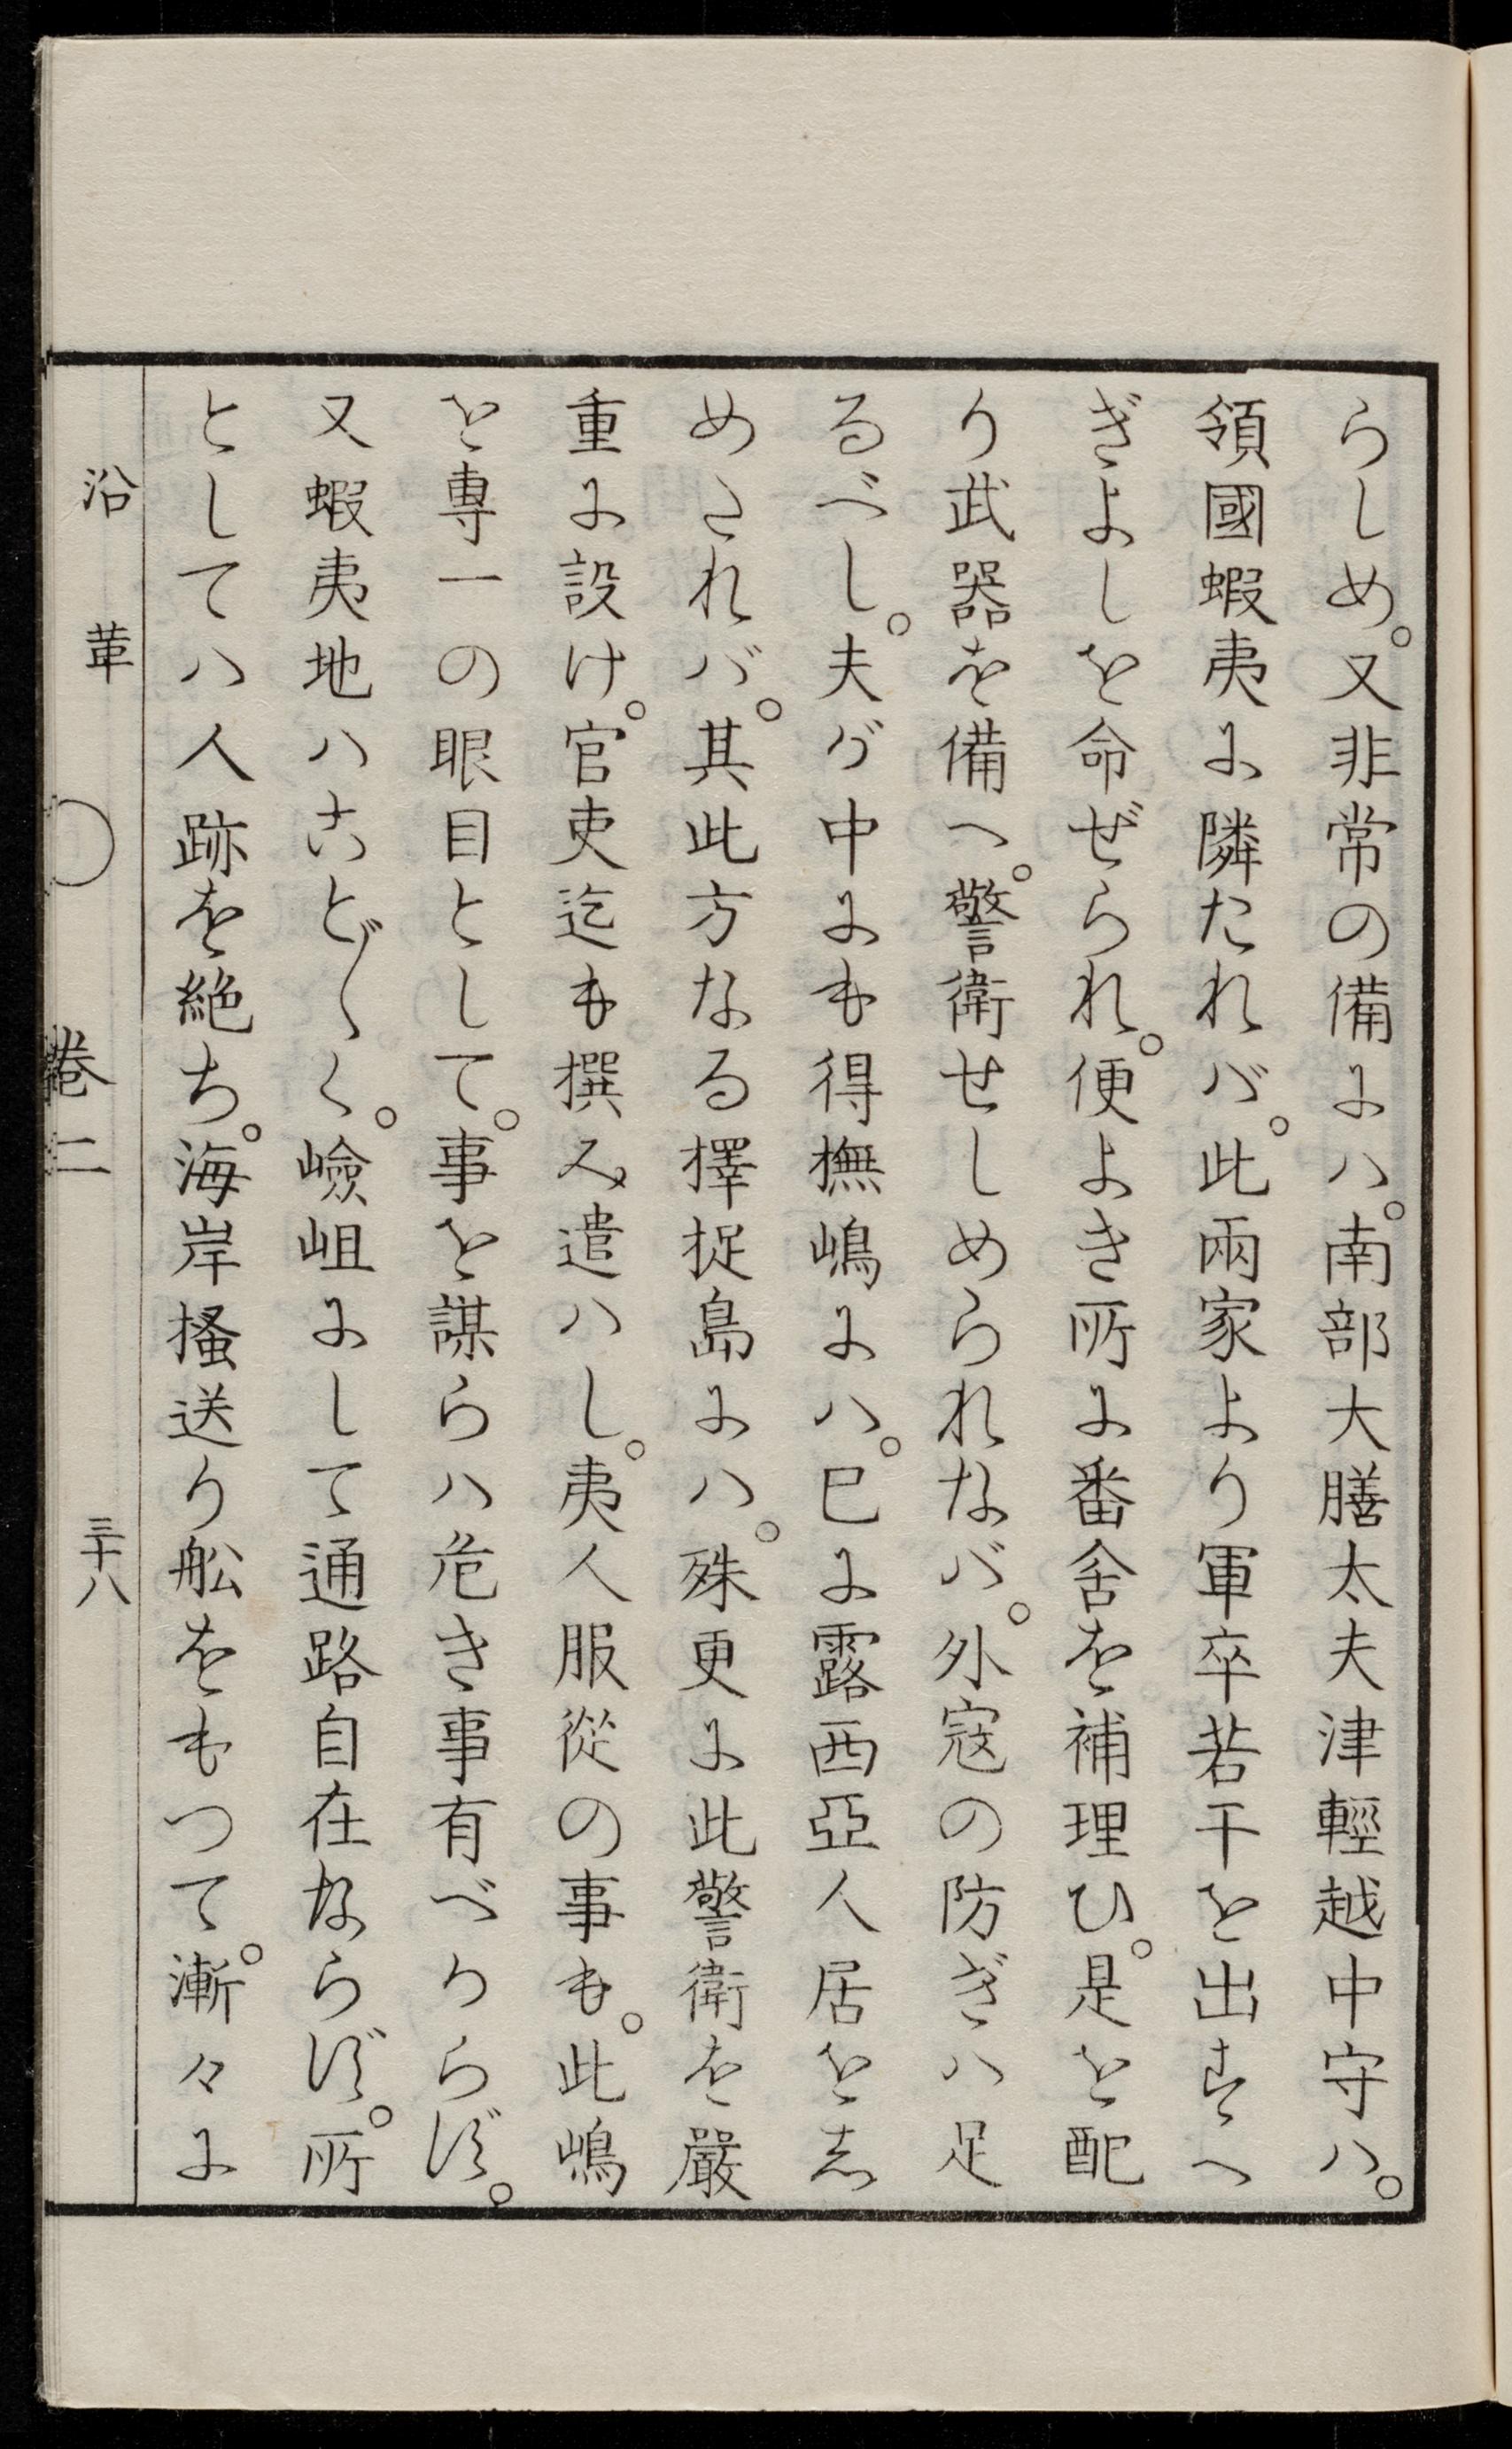 らしめ。又非常の備にハ。南部大膳太夫津輕越中守ハ。
領國蝦夷に隣たれバ。此兩家より軍卒若干を出すへ
ぎよしを命ぜられ。便よき所に番舍を補理ひ。是を配
り武器を備へ。警衛せしめられなバ。外寇の防ぎハ足
るべし。夫が中にも得撫嶋にハ。巳に露西亞人居をし
めされバ。其此方なる擇捉島にハ。殊更に此警衛を嚴
重に設け。官吏迄も撰み遣ハし。夷人服從の事も。此嶋
を專一の眼目として。事を謀らハ危き事有べからず。
又蝦夷地ハこと〴〵く。嶮岨にして通路自在ならず。所
としてハ人跡を絶ち。海岸掻送り舩をもつて。漸々に
沿革　〇　卷二　三十八